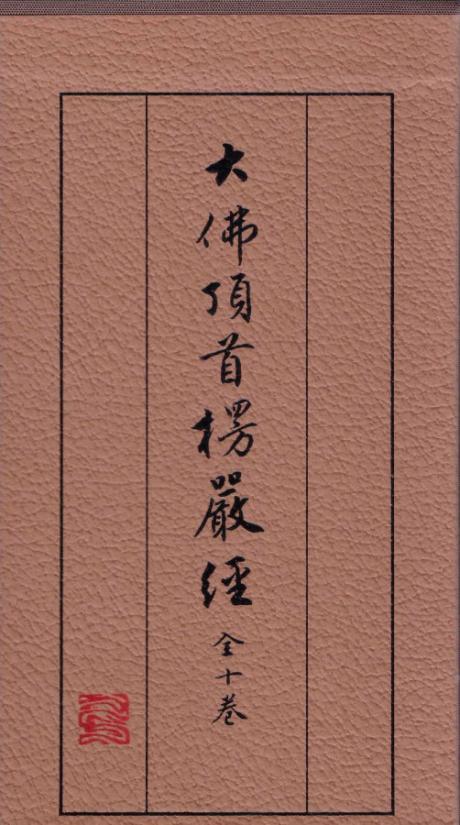 大佛頂首楞嚴經 全十卷